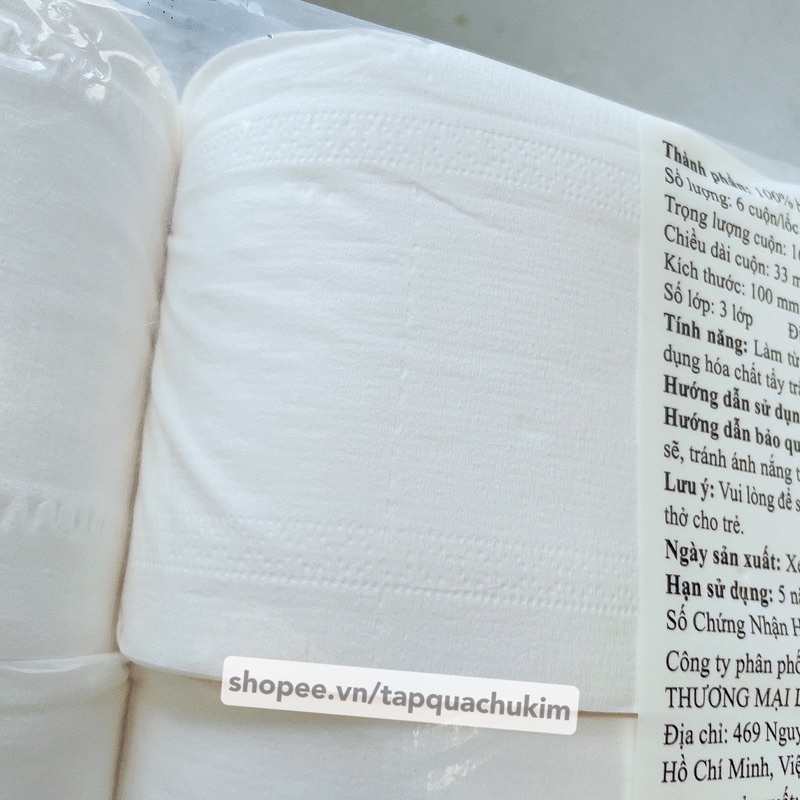 Thành phần: 100%
Số lượng: 6 cuộn/lốc
Trọng lượng cuộn:
Chiều dài cuộn: 33
Kích thước: 100 mm
Số lớp: 3 lớp
Tính năng: Làm từ
dụng hóa chất tẩy
Hướng dẫn sử
Hướng dẫn bảo
sẽ, tránh ánh nắng
Lưu ý: Vui lòng để
thở cho trẻ.
Ngày sản xuất:
Hạn sử dụng: 5
Số Chứng Nhận
Công ty phân
THƯƠNG MẠI
Địa chỉ: 469
Hồ Chí Minh,
shopee.vn/tapquachukim